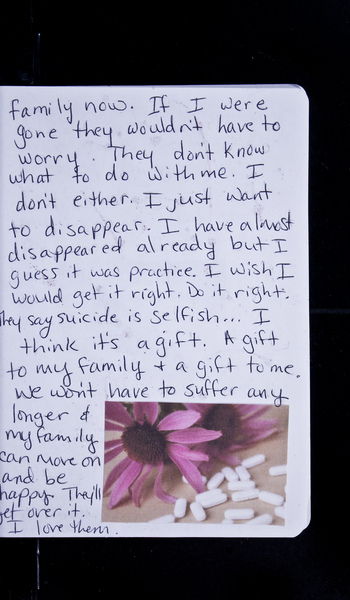 family now. If I were
gone they wouldn't have to
worry. They don't know
what to do with me. I
don't either. I just want
to disappear. I have almost
disappeared already but I
guess it was practice. I wish I
would get it right. Do it right.
They say suicide is selfish... I
think it's a gift. A gift
to my family + a gift to me.
We won't have to suffer any
longer &
my family
can move on
and be
happy. They'll
get over it.
I love them.